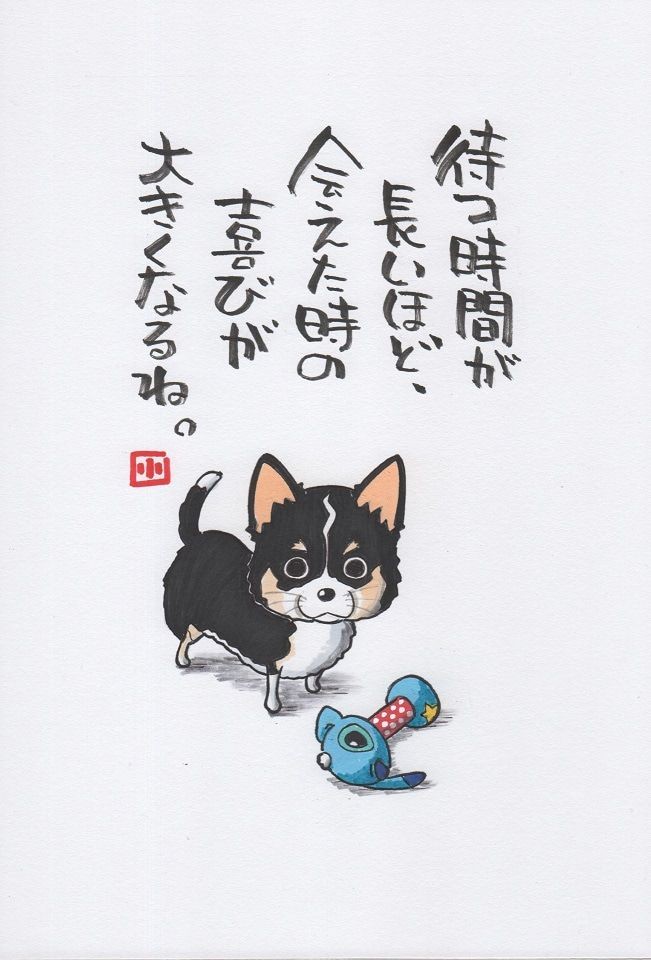 待つ時間が
長いほど、
会えた時の
喜びが
大きくなるね。
小